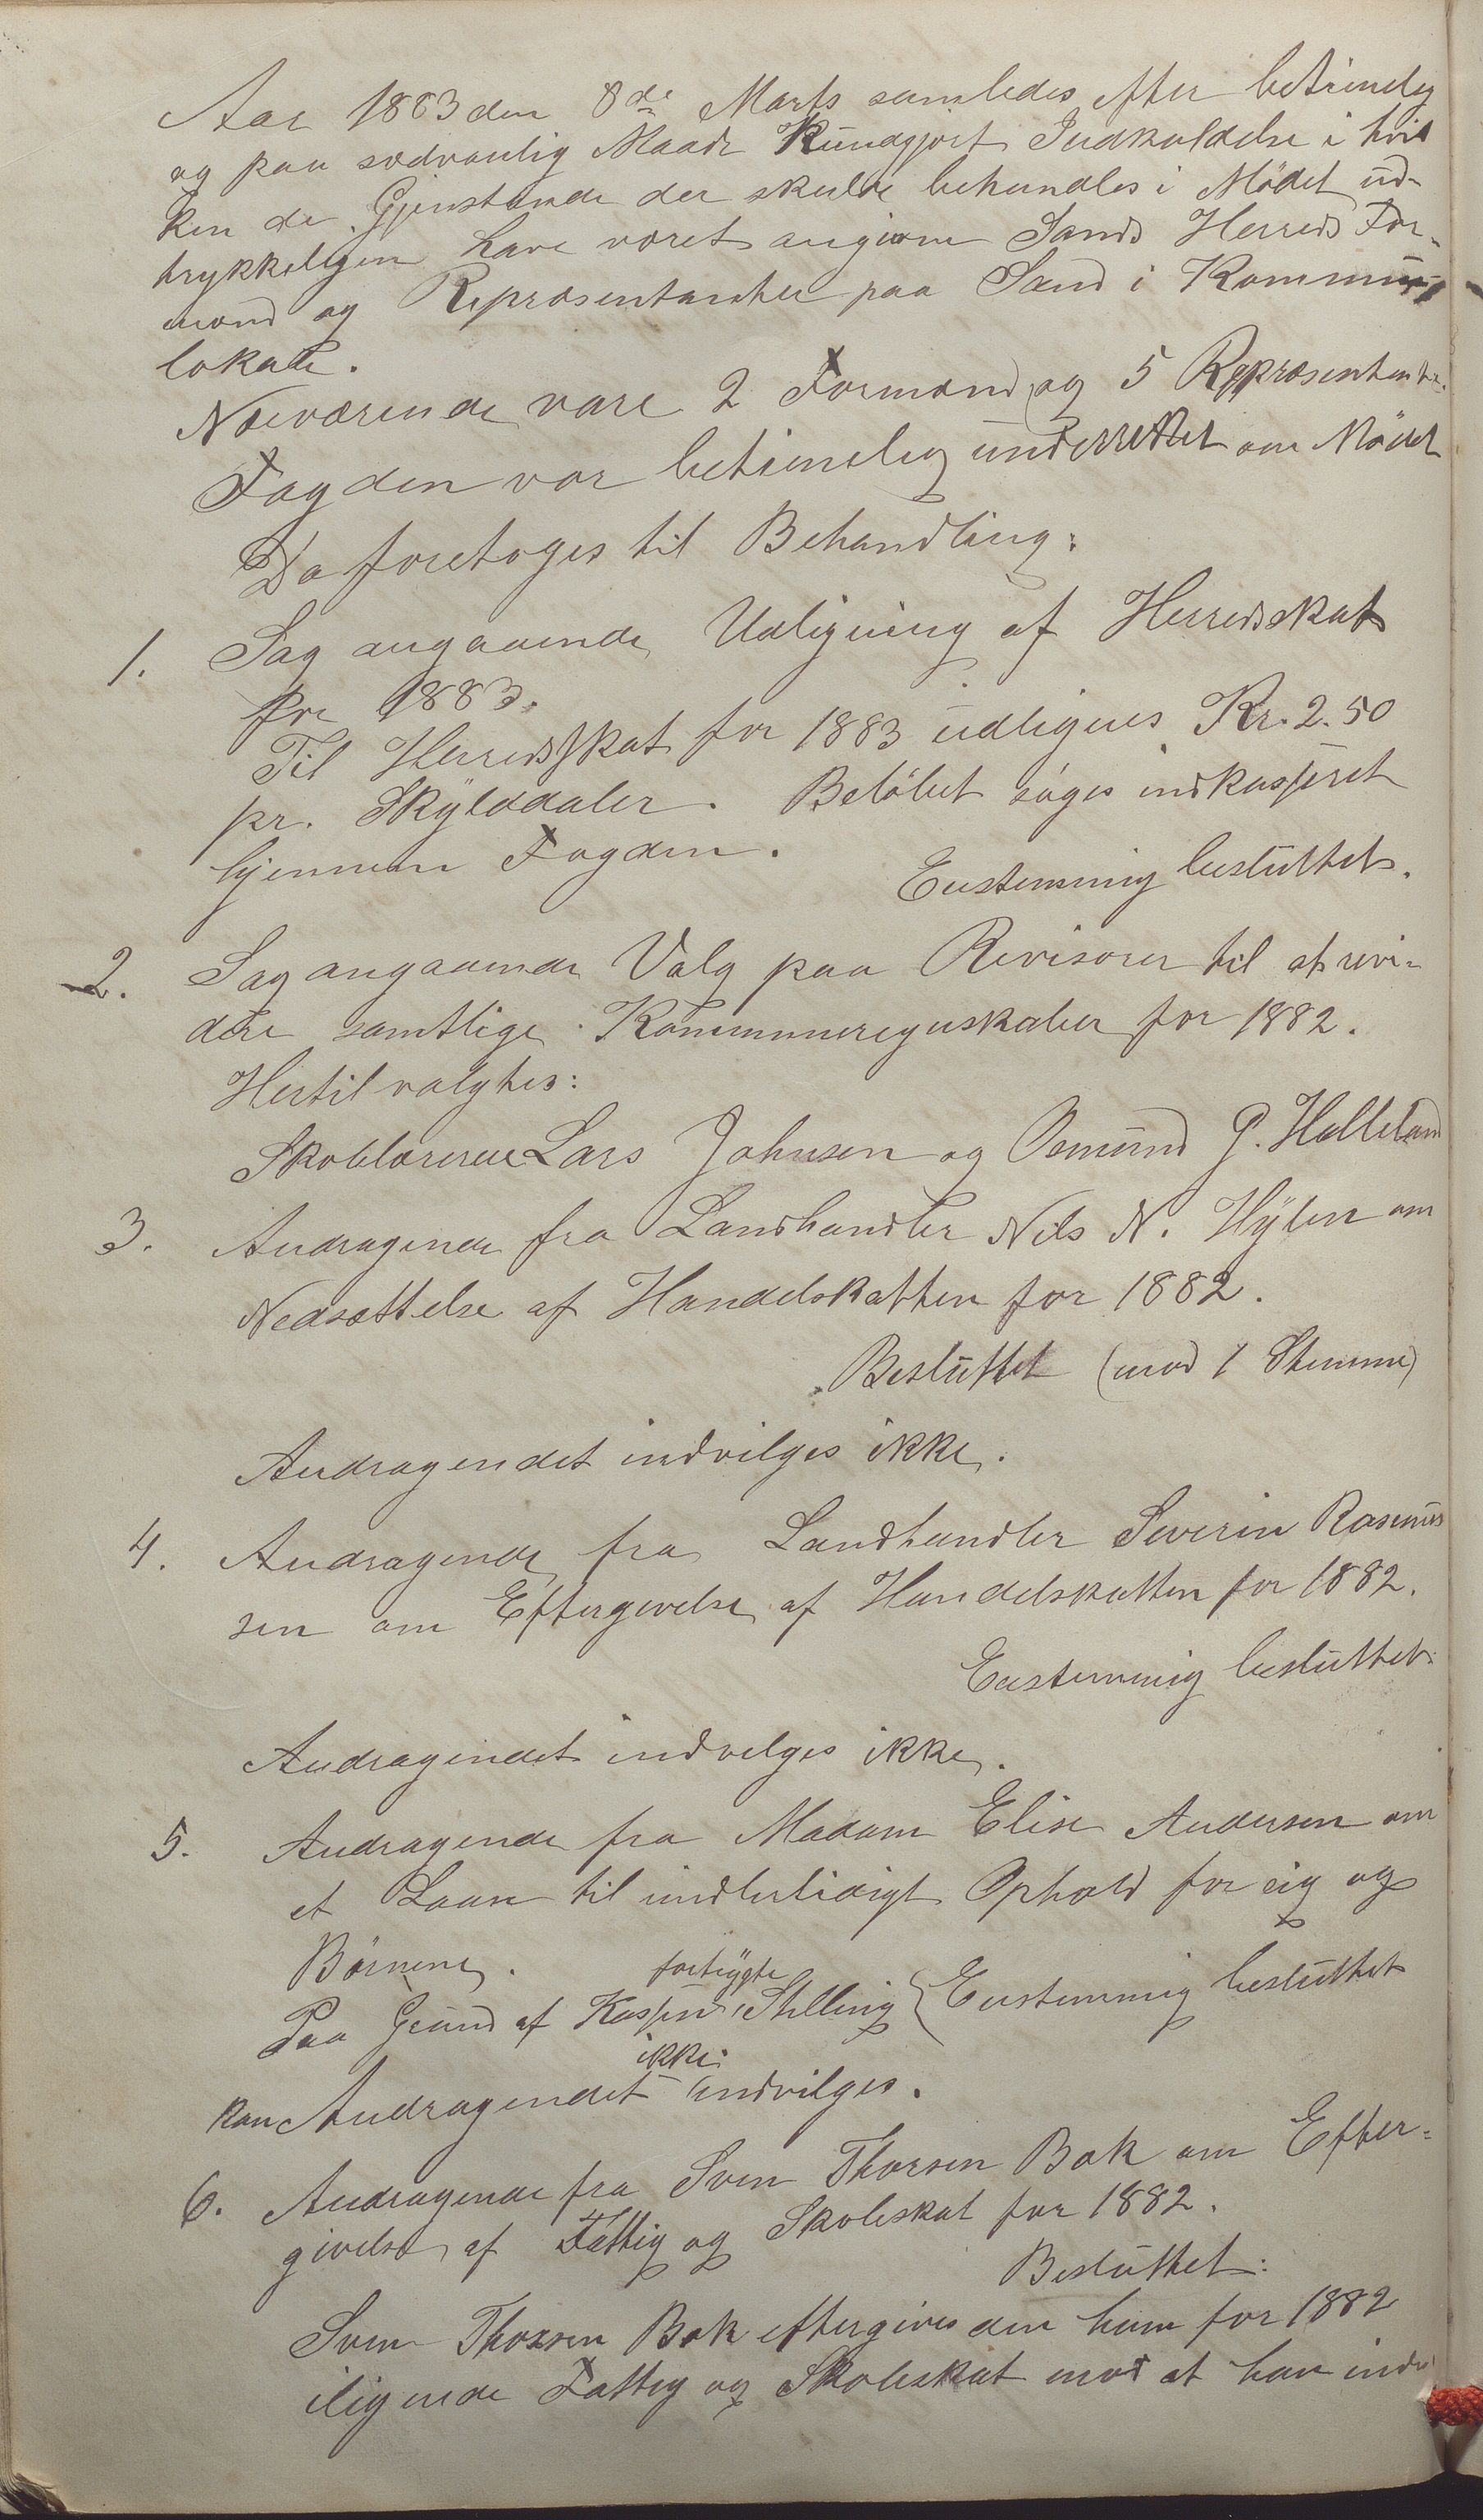 Aar 1883 den 8de Marts samledes efter betimelig
og paa sædvanlig Maade Kundgjort Indkaldelse i hvil
ken de Gjenstande der skulde behandles i Mödet ud-
trykkeligen have været angivne Sands Herreds For-
mænd og Repræsentanter paa Sand i Kommune
lokale.
Nærværende vare 2 Formænd og 5 Repræsentanter.
Fogden var betimelig underrettet om Mödet
Da foretoges til Behandling:
1. Sag angaaende Udligning af Herredsskat
for 1883.
Til Herredsskat for 1883 udlignes Kr. 2.50
pr. Skylddaler. Belöbet söges indkasseret
gjennem Fogden.
Enstemmig besluttet.
2. Sag angaaende Valg paa Revisorer til at revi-
dere samtlige Kommuneregnskaber for 1882.
Hertil valgtes:
Skolelærerne Lars Johnsen og Osmund G. Helleland
3. Andragende fra Landhandler Nels N. Hylen om
Nedsættelse af Handelskatten for 1882.
Besluttet (mod 1 Stemme)
Andragendet indvilges ikke.
4. Andragende fra Landhandler Severin Rasmus
sen om Eftergivelse af Handelskatten for 1882.
Enstemmig besluttet
Andragendet indvilges ikke.
5. Andragende fra Madam Elise Andersen om
et Laan til midlertidigt Ophold for sig og
Börnene.
Paa Grund af Kassens fortrÿgte Stilling Enstemmig besluttet
kan Andragendet ikke indvilges.
6. Andragende fra Sven Thorsen Bak om Efter-
givelse af Fattig og Skoleskat for 1882.
Besluttet:
Sven Thorsen Bak eftergives den ham for 1882
iligende Fattig og Skoleskat mod at han inds